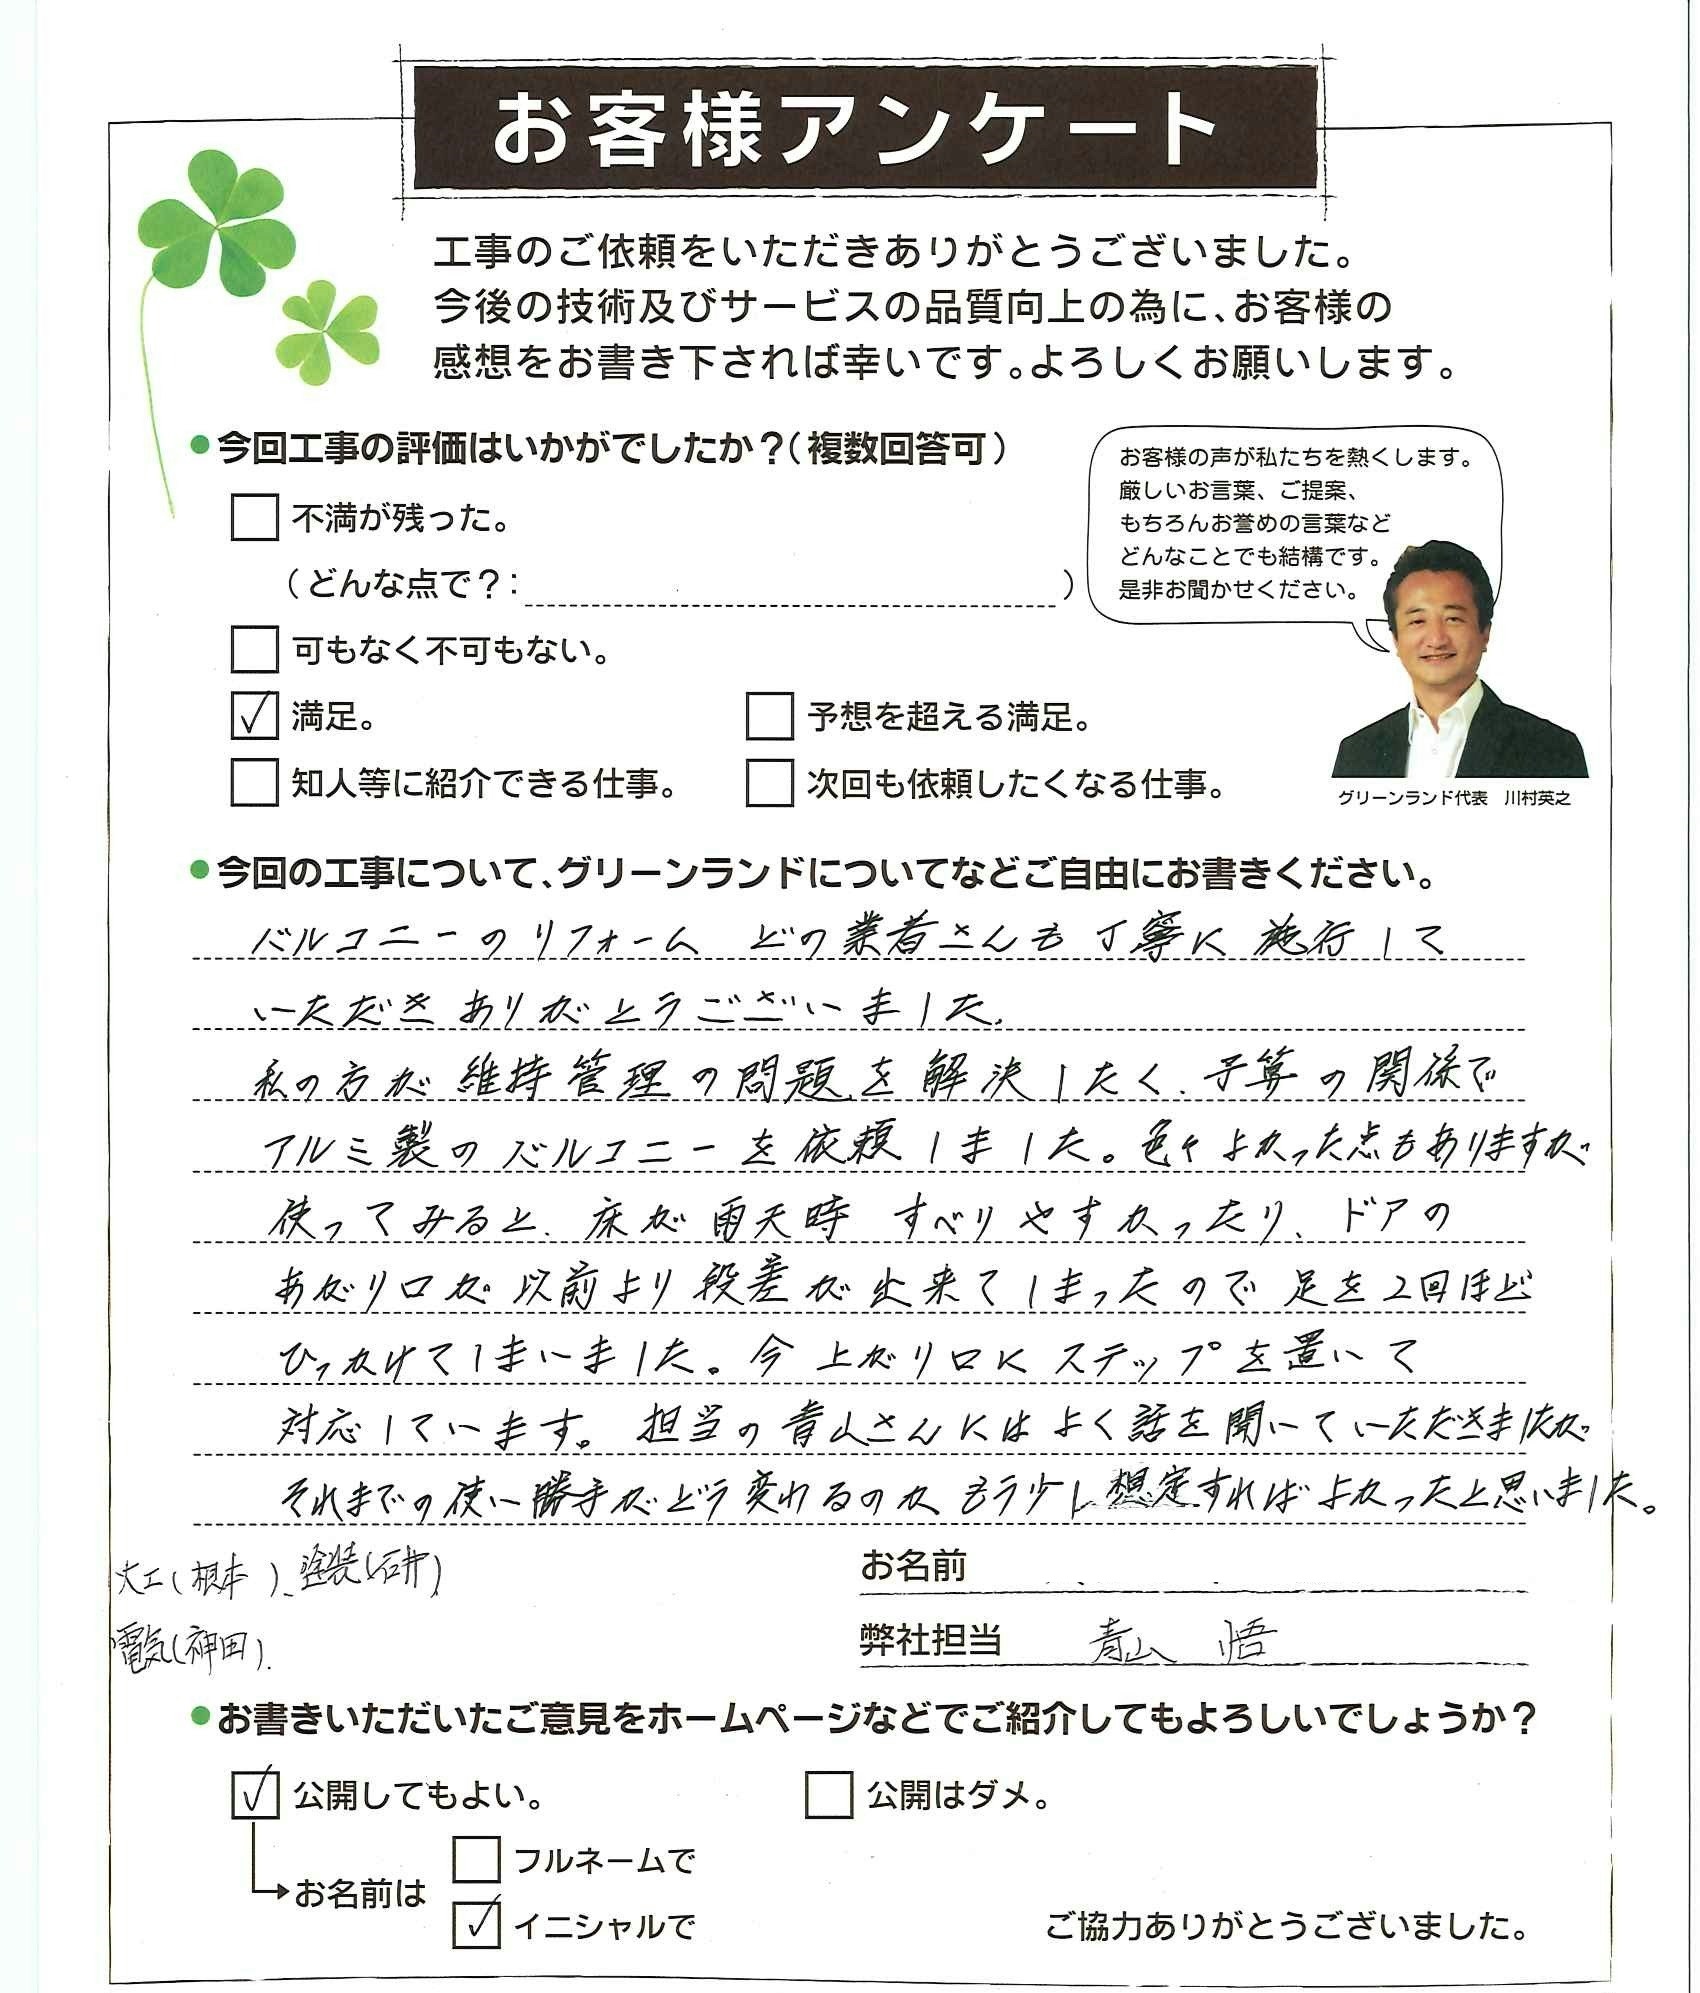 お客様アンケート
工事のご依頼をいただきありがとうございました。
今後の技術及びサービスの品質向上の為に、お客様の
感想をお書き下されば幸いです。よろしくお願いします。
●今回工事の評価はいかがでしたか？（複数回答可）
不満が残った。
（どんな点で？：　）
可もなく不可もない。
✓ 満足。
予想を超える満足。
知人等に紹介できる仕事。
次回も依頼したくなる仕事。
お客様の声が私たちを熱くします。
厳しいお言葉、ご提案、
もちろんお誉めの言葉など
どんなことでも結構です。
是非お聞かせください。
グリーンランド代表　川村英之
●今回の工事について、グリーンランドについてなどご自由にお書きください。
バルコニーのリフォーム どの業者さんも丁寧に施行して
いただきありがとうございました。
私の方が維持管理の問題を解決したく、予算の関係で
アルミ製のバルコニーを依頼しました。色々よかった点もありますが
使ってみると、床が雨天時 すべりやすかったり、ドアの
あがり口が以前より段差が出来てしまったので足を2回ほど
ひっかけてしまいました。今上がり口にステップを置いて
対応しています。担当の青山さんにはよく話を聞いていただきましたが
それまでの使い勝手がどう変わるのか、もう少し想定すればよかったと思いました。
大工(根本)、塗装(石井)
電気(神田).
お名前
弊社担当　青山　悟
●お書きいただいたご意見をホームページなどでご紹介してもよろしいでしょうか？
✓ 公開してもよい。
公開はダメ。
お名前は
フルネームで
✓ イニシャルで
ご協力ありがとうございました。